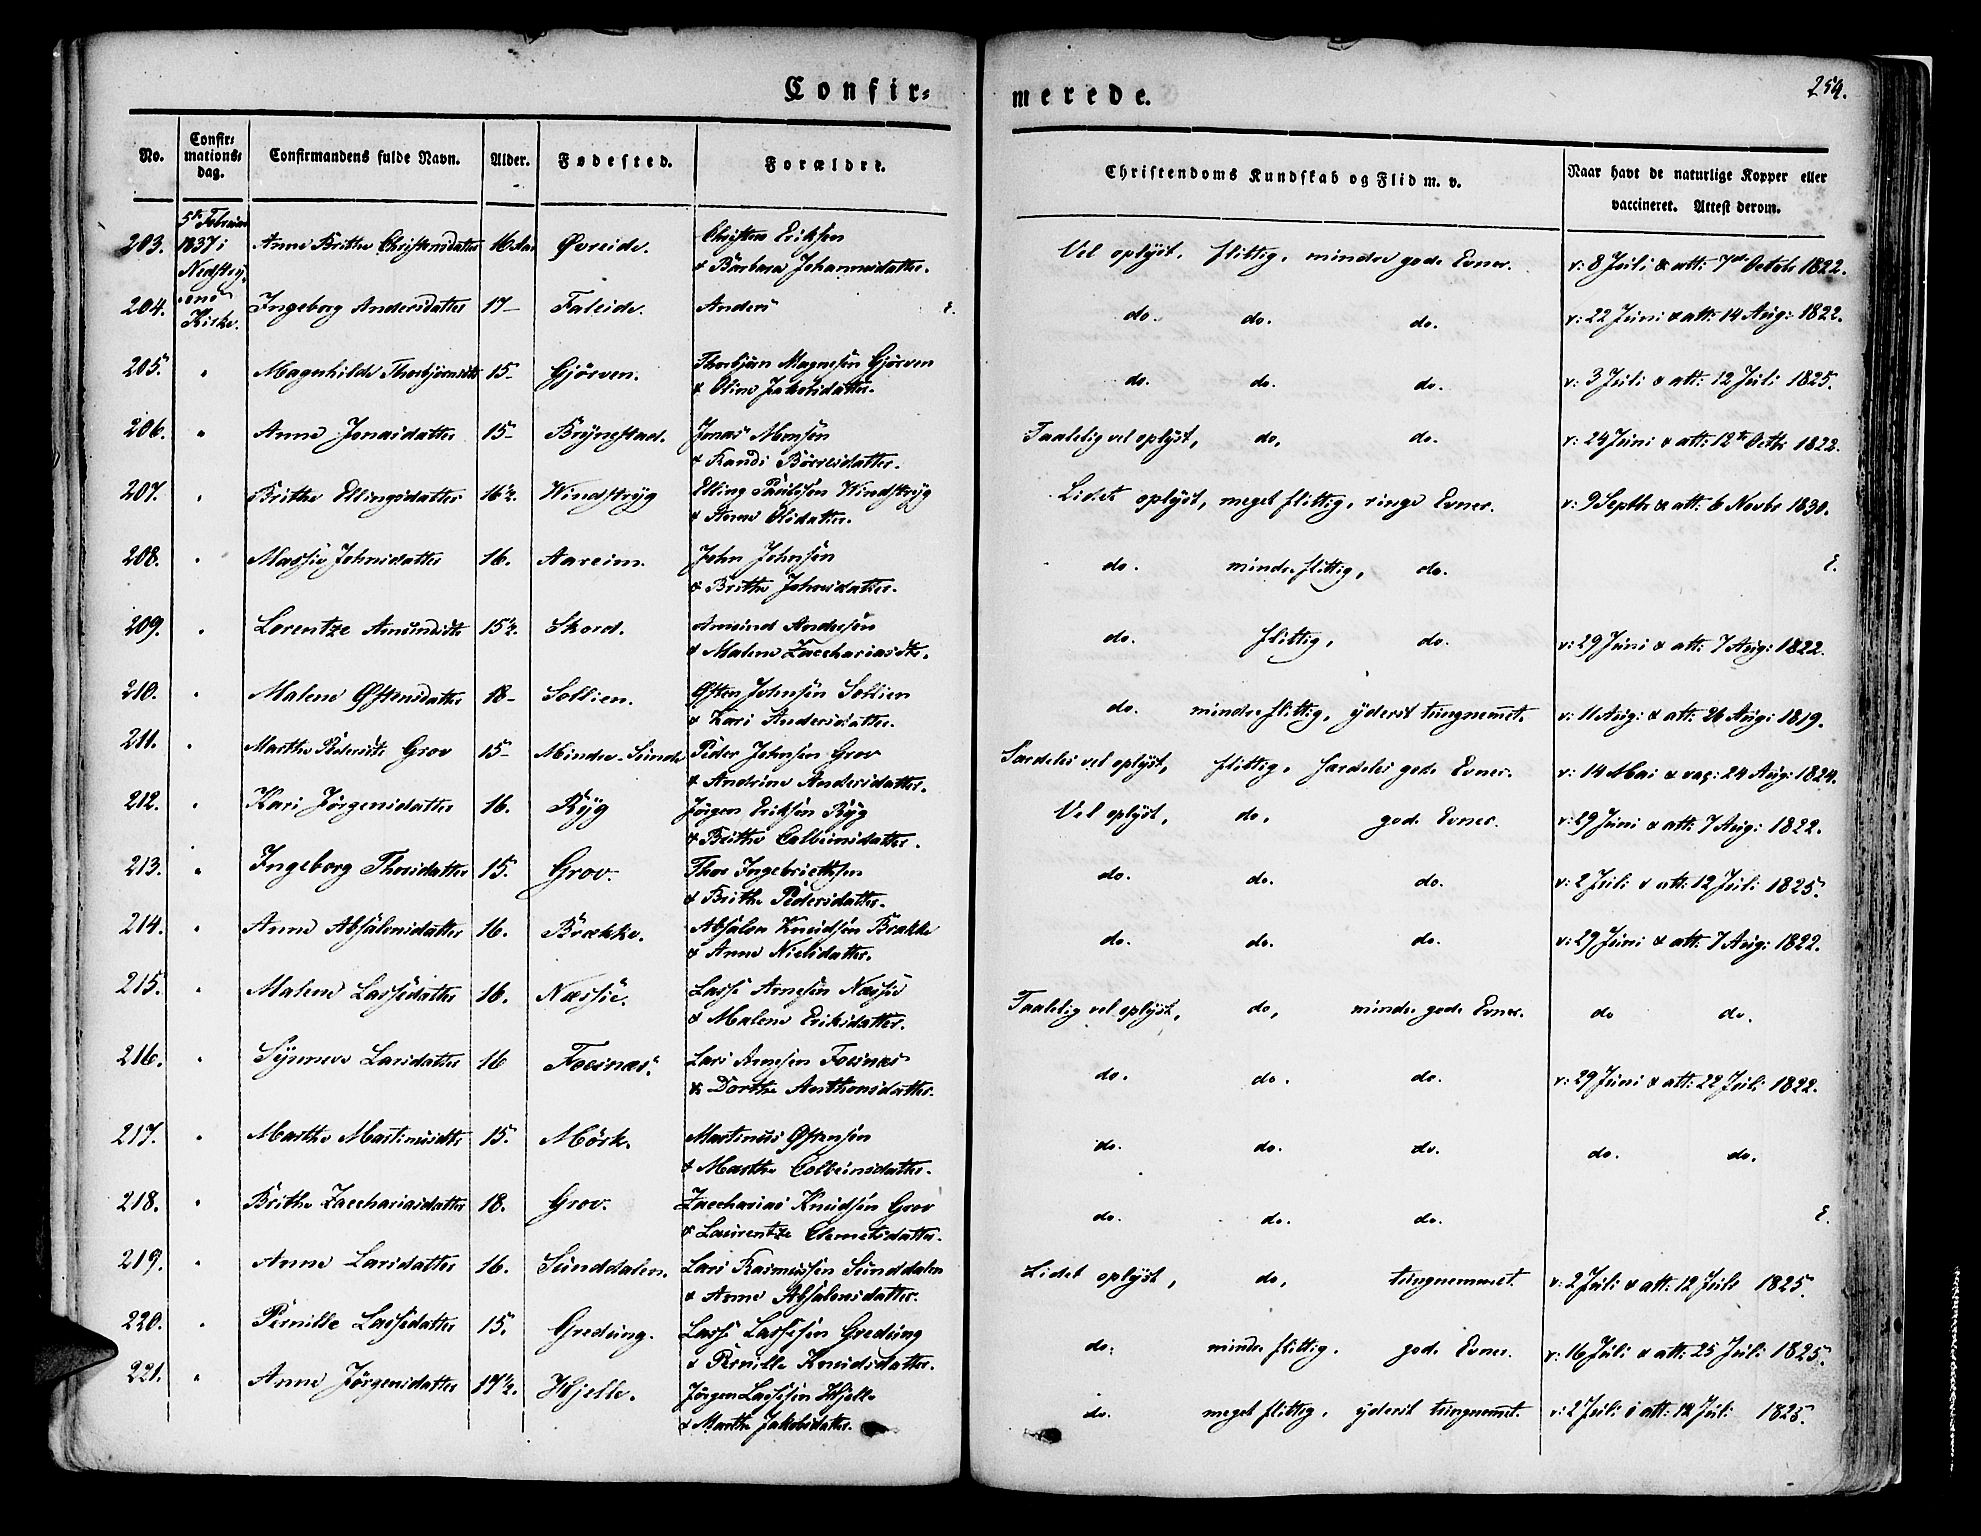 Confir= merede. 254.
No. Confir= mations= dag. Confirmandens fulde Navn. Alder. Fødested. Forældre. Christendoms Kundskab og Flid m. v. Naar havt de naturlige Kopper eller vaccineret. Attest derom.
5te Februar 1837 i Kirke.
203. Anne Brithe Christensdatter 16 Aar Øvreide. Christen Eriksen & Barbara Johannesdatter. Vel oplyst, flittig, mindre gode Evner. v: 8 Juli & att: 7de Octobr 1822.
204. Ingeborg Andersdatter 17- Faleide. Anders ε. do. do. do. v: 22 Juni & att: 14 Aug: 1822.
205. " Magnhilde Thorbjørnsdtr 15- Gjörven. Thorbjørn Magnesen Gjörven & Oline Jakobsdatter. do. do. do. v: 3 Juli & att: 12 Juli 1825.
206. " Anne Jonasdatter 15- Brynestad. Jonas Monsen & Randi Börresdatter. Taalelig vel oplyst, do, do. v: 24 Juni & att: 12te Octbr 1822.
207. " Brithe Ellingsdatter 16½. Windstryg Elling Paulsen Windstryg & Anne Olsdatter. Lidet oplyst, meget flittig, ringe Evner. v: 9 Septbr & att: 6 Novbr 1830.
208. " Massie Johnsdatter 16. Aareim. John Johnsen & Brithe Johnsdatter. do. mindre flittig, do. ε.
209. " Lorentze Amundsdtr 15½. Skord. Amund Andersen & Malene Zacchariasdtr. do. flittig, do. v: 29 Juni & att: 7 Aug: 1822.
210. " Malene Østensdatter 18- Sollien. Østen Johnsen Sollien & Kari Andersdatter. do. mindre flittig, yderst tungnemmet. v: 11 Aug: & att: 26 Aug: 1819.
211. " Marthe Pedersdtr Grov 15- Mindre-Sunde Peder Johnsen Grov & Andrine Andersdatter. Særdeles vel oplyst, flittig, særdeles gode Evner. v: 14 Mai & vac: 24 Aug: 1824.
212. " Kari Jörgensdatter 16. Ryg Jörgen Eriksen Ryg & Brithe Colbeinsdatter. Vel oplyst, do, gode Evner. v: 29 Juni & att: 7 Aug: 1822.
213. " Ingeborg Thorsdatter 15. Grov. Thor Ingebrietsen & Brithe Pedersdatter. do. do. do. v: 2 Juli & att: 12 Juli 1825.
214. " Anne Absalonsdatter 16. Brække. Absalon Knudsen Brække & Anne Nielsdatter. do. do. do. v: 29 Juni & att: 7 Aug: 1822.
215. " Malene Lassedatter 16. Næssie. Lasse Arnesen Næssie & Malene Eriksdatter. Taalelig vel oplyst, do, mindre gode Evner. do do.
216. " Synneve Larsdatter 16 Fosnæs. Lars Arnesen Fosnæs & Dorthe Anthonsdatter. do. do. do. v: 29 Juni & att: 22 Juli 1822.
217. " Marthe Martinusdtr 15. Mörk. Martinus Østensen & Marthe Colbeinsdatter. do. do. do. do. do.
218. " Brithe Zacchariasdatter 18. Grov. Zaccharias Knudsen Grov & Laurentze Clemetsdatter. do. do. do. ε.
219. " Anne Larsdatter 16. Sunddalen. Lars Rasmussen Sunddalen & Anne Absalonsdatter. Lidet oplyst, do, tungnemmet. v: 2 Juli & att: 12 Juli 1825.
220. " Pernille Lassedatter 15. Gredung. Lasse Lassesen Gredung & Pernille Knudsdatter. do: mindre flittig. gode Evner. v: 16 Juli & att: 25 Juli 1825.
221. " Anne Jörgensdatter 17½. Hjelle. Jörgen Lassesen Hjelle & Marthe Jakobsdatter. do. meget flittig, yderst tungnemmet. v: 2 Juli & att: 12 Juli 1825.